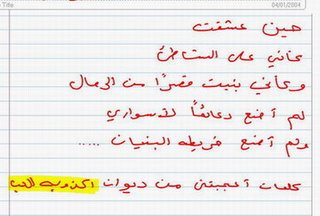 Title
04/01/2004
حين عشقت
كأني على الشاطئ
وكأني بنيت قصرًا من الرمال
لم أضع دعائمًا لأسواري
ولم أضع خريطه البنيان .....
كلمات أعجبتني من ديوان اكذوبه الحب